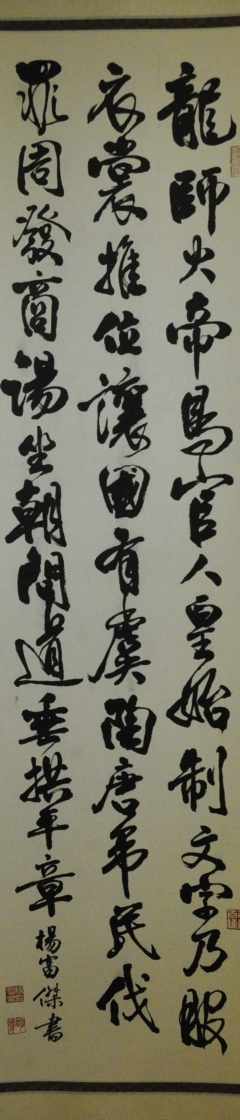 龍師火帝鳥官人皇始制文字乃服
衣裳推位讓國有虞陶唐弔民伐
罪周發商湯坐朝問道垂拱平章
楊富傑書